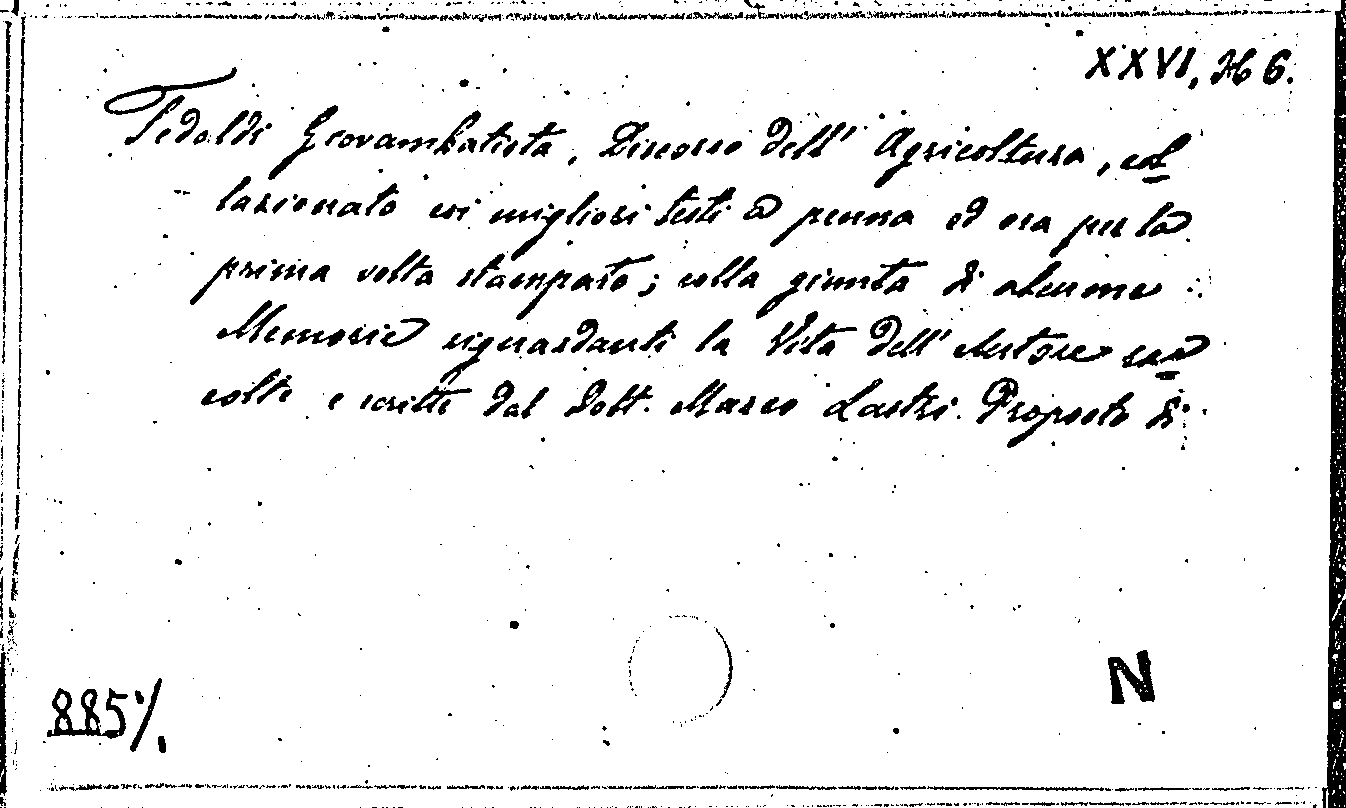 XXVI, H 6.
Tedaldi Giovambatista, Discorso dell' Agricoltura, col
lazionato coi migliori testi a penna ed ora per la
prima volta stampato; colla giunta di alcune
Memorie riguardanti la Vita dell' Autore rac
colte e scritte dal Dott. Marco Lastri. Proposto di
885 ·/.
N